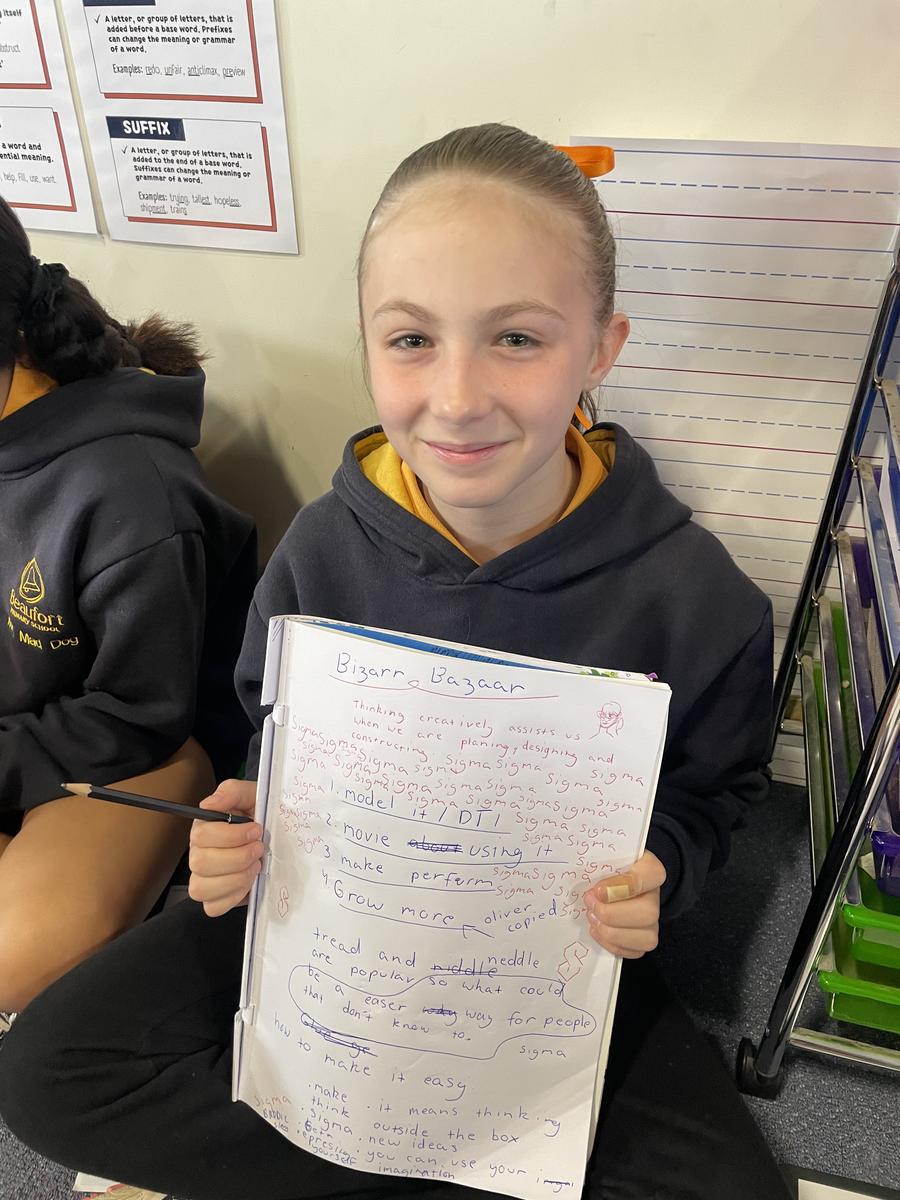 itself
A letter, or group of letters, that is
added before a base word. Prefixes
can change the meaning or grammar
of a word.
Examples: redo, unfair, anticlimax, preview
a word and
ential meaning.
help, fill, use, want.
SUFFIX
A letter, or group of letters, that is
added to the end of a base word.
Suffixes can change the meaning or
grammar of a word.
Examples: trying, tallest, hopeless,
shipment, trains
Beaufort
PRIMARY SCHOOL
Mad Dog
Bizarr Bazaar
Thinking creatively assists us
when we are planing, designing and
constructing. Sigma Sigma Sigma
Sigma Sigma Sigma Sigma Sigma Sigma
Sigma Sigma Sigma Sigma Sigma Sigma
1. model Sigma Sigma Sigma Sigma
it / DTI Sigma Sigma
2. movie about using it
3. make perferm Sigma Sigma
4. Grow more oliver copied
tread and niddle neddle
are popular so what could
be a easer way way for people
that don't know to.
sigma
how to make it easy
make . it means think.ing
think outside the box
. Sigma . new ideas
. you can use your
yourself imagination